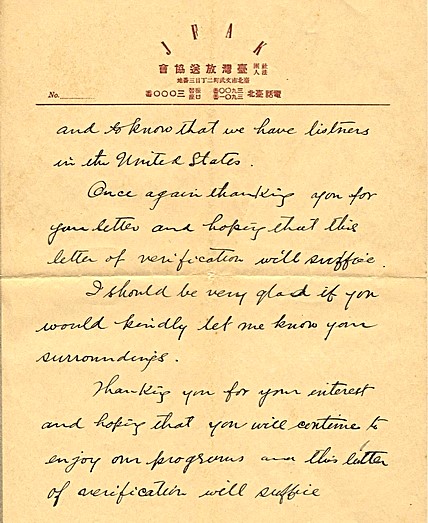 JFAK
社團法人 臺灣放送協會
臺北市文武町二丁目三番地
電話臺北 三九〇〇番 三九〇一番 三〇〇〇番
No.
and to know that we have listners
in the United States.
Once again thanking you for
your letter and hoping that this
letter of verification will suffice.
I should be very glad if you
would kindly let me know your
surroundings.
Thanking you for your interest
and hoping that you will continue to
enjoy our programs and this letter
of verification will suffice